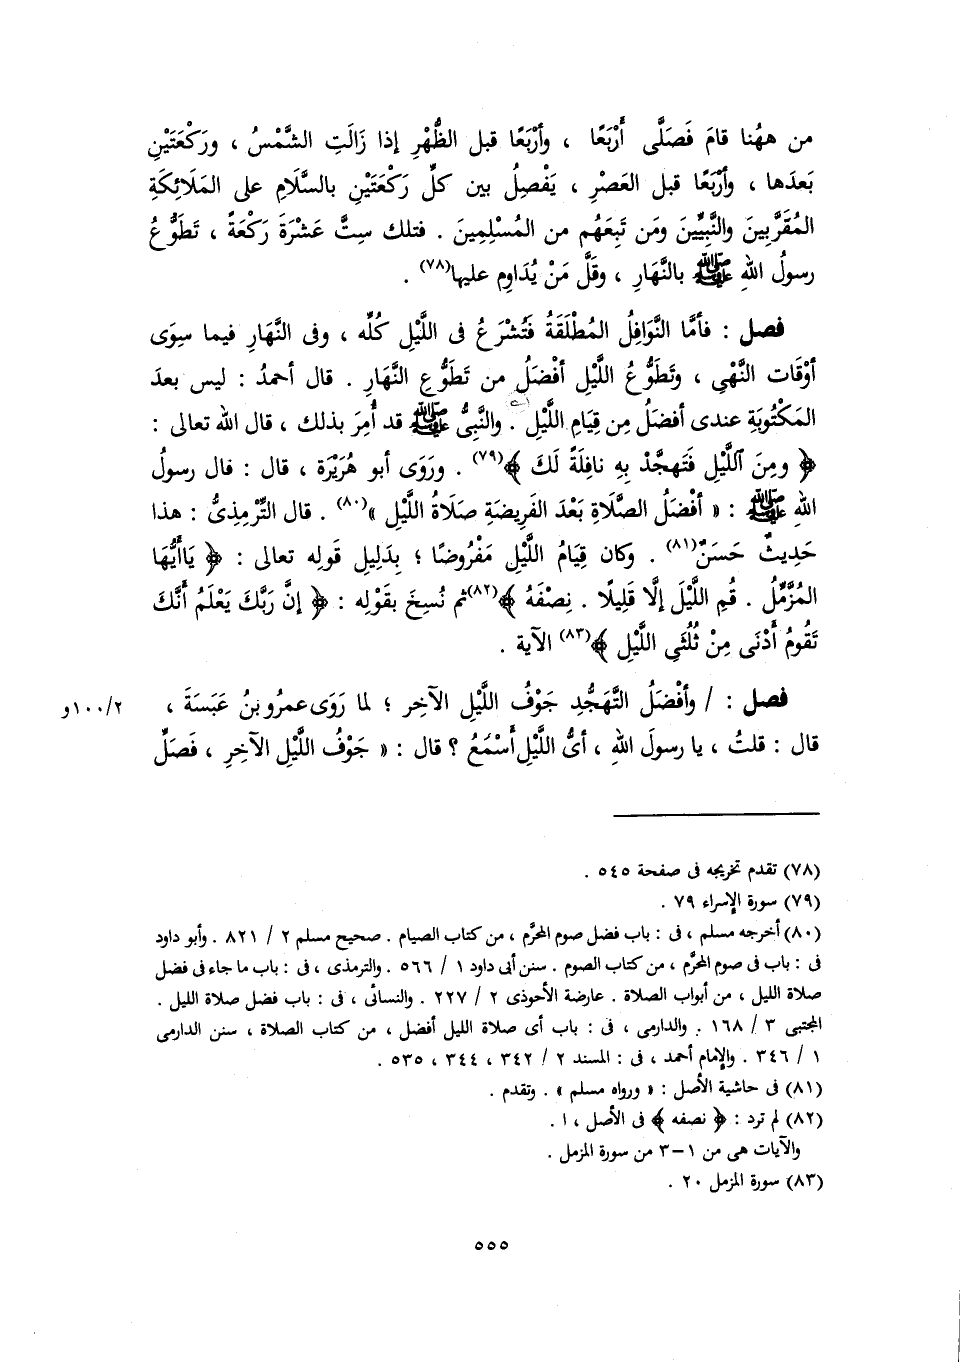 من ههُنا قامَ فَصَلَّى أَرْبَعًا ، وأرْبَعًا قبل الظُّهْرِ إذا زَالَتِ الشَّمْسُ ، ورَكْعَتَيْنِ
بَعدَها ، وأرْبَعًا قبل العَصْرِ ، يَفْصِلُ بين كلِّ رَكْعَتَيْنِ بالسَّلَامِ على المَلَائِكَةِ
المُقَرَّبِينَ والنَّبِيِّينَ ومَن تَبِعَهُم من المُسْلِمِينَ . فتلك سِتَّ عَشْرَةَ رَكْعَةً ، تَطَوُّعُ
رسولُ اللهِ ﷺ بالنَّهَارِ ، وقَلَّ مَنْ يُدَاوِم عليها(٧٨) .
فصل : فأمَّا النَّوَافِلُ المُطْلَقَةُ فَتُشْرَعُ فى اللَّيْلِ كُلِّه ، وفى النَّهَارِ فيما سِوَى
أوْقَات النَّهْىِ ، وتَطَوُّعُ اللَّيْلِ أفْضَلُ من تَطَوُّعِ النَّهَارِ . قال أحمدُ : ليس بعدَ
المَكْتُوبَةِ عندى أفضَلُ مِن قِيَامِ اللَّيْلِ . والنَّبِىُّ ﷺ قد أُمِرَ بذلك ، قال الله تعالى :
﴿ ومِنَ ٱللَّيْلِ فَتَهجَّدْ بِهِ نافِلَةً لَكَ ﴾(٧٩) . ورَوَى أبو هُرَيْرَة ، قال : قال رسولُ
اللهِ ﷺ : « أفْضَلُ الصَّلَاةِ بَعْدَ الفَرِيضَةِ صَلَاةُ اللَّيْلِ »(٨٠) . قال التِّرْمِذِىُّ : هذا
حَدِيثٌ حَسَنٌ(٨١) . وكان قِيَامُ اللَّيْلِ مَفْرُوضًا ؛ بِدَلِيلِ قَولِه تعالى : ﴿ يَاأَيُّهَا
المُزَّمِّلُ . قُمِ اللَّيْلَ إلَّا قَلِيلًا . نِصْفَهُ ﴾(٨٢)ثم نُسِخَ بقَوْلِه : ﴿ إنَّ رَبَّكَ يَعْلَمُ أنَّكَ
تَقُومُ أَدْنَى مِنْ ثُلُثَىِ اللَّيْلِ ﴾(٨٣) الآية .
فصل : / وأفْضَلُ التَّهَجُّدِ جَوْفُ اللَّيْلِ الآخِر ؛ لما رَوَى عمرُو بنُ عَبَسَةَ ، ١٠٠/٢و
قال : قلتُ ، يا رسولَ اللهِ ، أىُّ اللَّيْلِ أَسْمَعُ ؟ قال : « جَوْفُ اللَّيْلِ الآخِرِ ، فَصَلِّ
(٧٨) تقدم تخريجه فى صفحة ٥٤٥ .
(٧٩) سورة الإسراء ٧٩ .
(٨٠) أخرجه مسلم ، فى : باب فضل صوم المحرَّم ، من كتاب الصيام . صحيح مسلم ٢ / ٨٢١ . وأبو داود
فى : باب فى صوم المحرَّم ، من كتاب الصوم . سنن أبى داود ١ / ٥٦٦ . والترمذى ، فى : باب ما جاء فى فضل
صلاة الليل ، من أبواب الصلاة . عارضة الأحوذى ٢ / ٢٢٧ . والنسائى ، فى : باب فضل صلاة الليل .
المجتبى ٣ / ١٦٨ . والدارمى ، فى : باب أى صلاة الليل أفضل ، من كتاب الصلاة ، سنن الدارمى
١ / ٣٤٦ . والإمام أحمد ، فى : المسند ٢ / ٣٤٢ ، ٣٤٤ ، ٥٣٥ .
(٨١) فى حاشية الأصل : « ورواه مسلم » . وتقدم .
(٨٢) لم ترد : ﴿ نصفه ﴾ فى الأصل ، ا .
والآيات هى من ١–٣ من سورة المزمل .
(٨٣) سورة المزمل ٢٠ .
٥٥٥